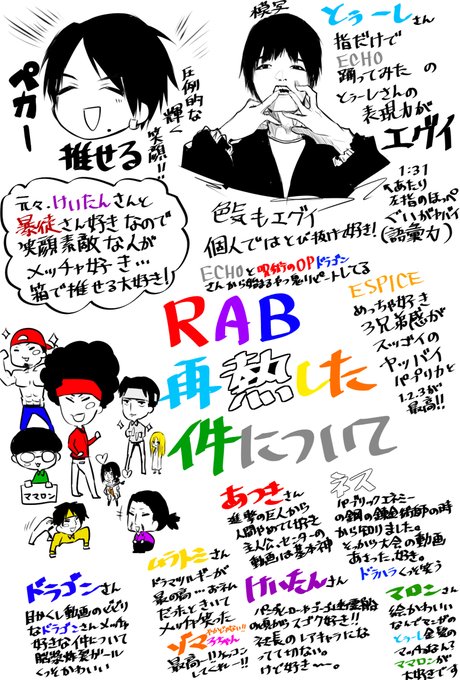 ペカー
圧倒的な
輝く
笑顔!!
推せる
模写
とぅーしさん
指だけで
ECHO
踊ってみた の
とぅーしさんの
表現力が
エグイ
1:31
あたり
左指のほっぺ
ぐいがヤバイ
(語彙力)
元々、けいたんさんと
暴徒さん好きなので
笑顔素敵な人が
メッチャ好き…
箱で推せる大好き!
色気もエグイ
個人ではとび抜け好き!
ECHOと呪術のOPドラゴン
さんから始まるやつ鬼リピートしてる
RAB
再熱した
件について
ESPICE
めっちゃ好き
3兄弟感が
スッゴイの
ヤッバイ
パプリカと
1.2.3が
最高!!
ママロン
ドラゴンさん
目かくし動画の
なドラゴンさんメッチャ
好きな件について
くっそかわいい
ムラトミさん
最高
だったときいて
メチャ笑った
ゾマちゃん
最高ー!!
してくれー!!
あつきさん
進撃の巨人から
人間やめてて好き
主人公、センターの
動画は基本神
けいたんさん
の頃からスゴク好き!!
社長のレアキャラになっ
てて切ない。
けど好き〜〜。
ネス
パブリックエネミー
の鋼の錬金術師の時
から知りました。
とっから大会の動画
あさった、好き。
ドラハラくっそ笑う
マロンさん
絵かわいい
なんでマンガの
とぅーし金髪の
ママロンが
大好きです